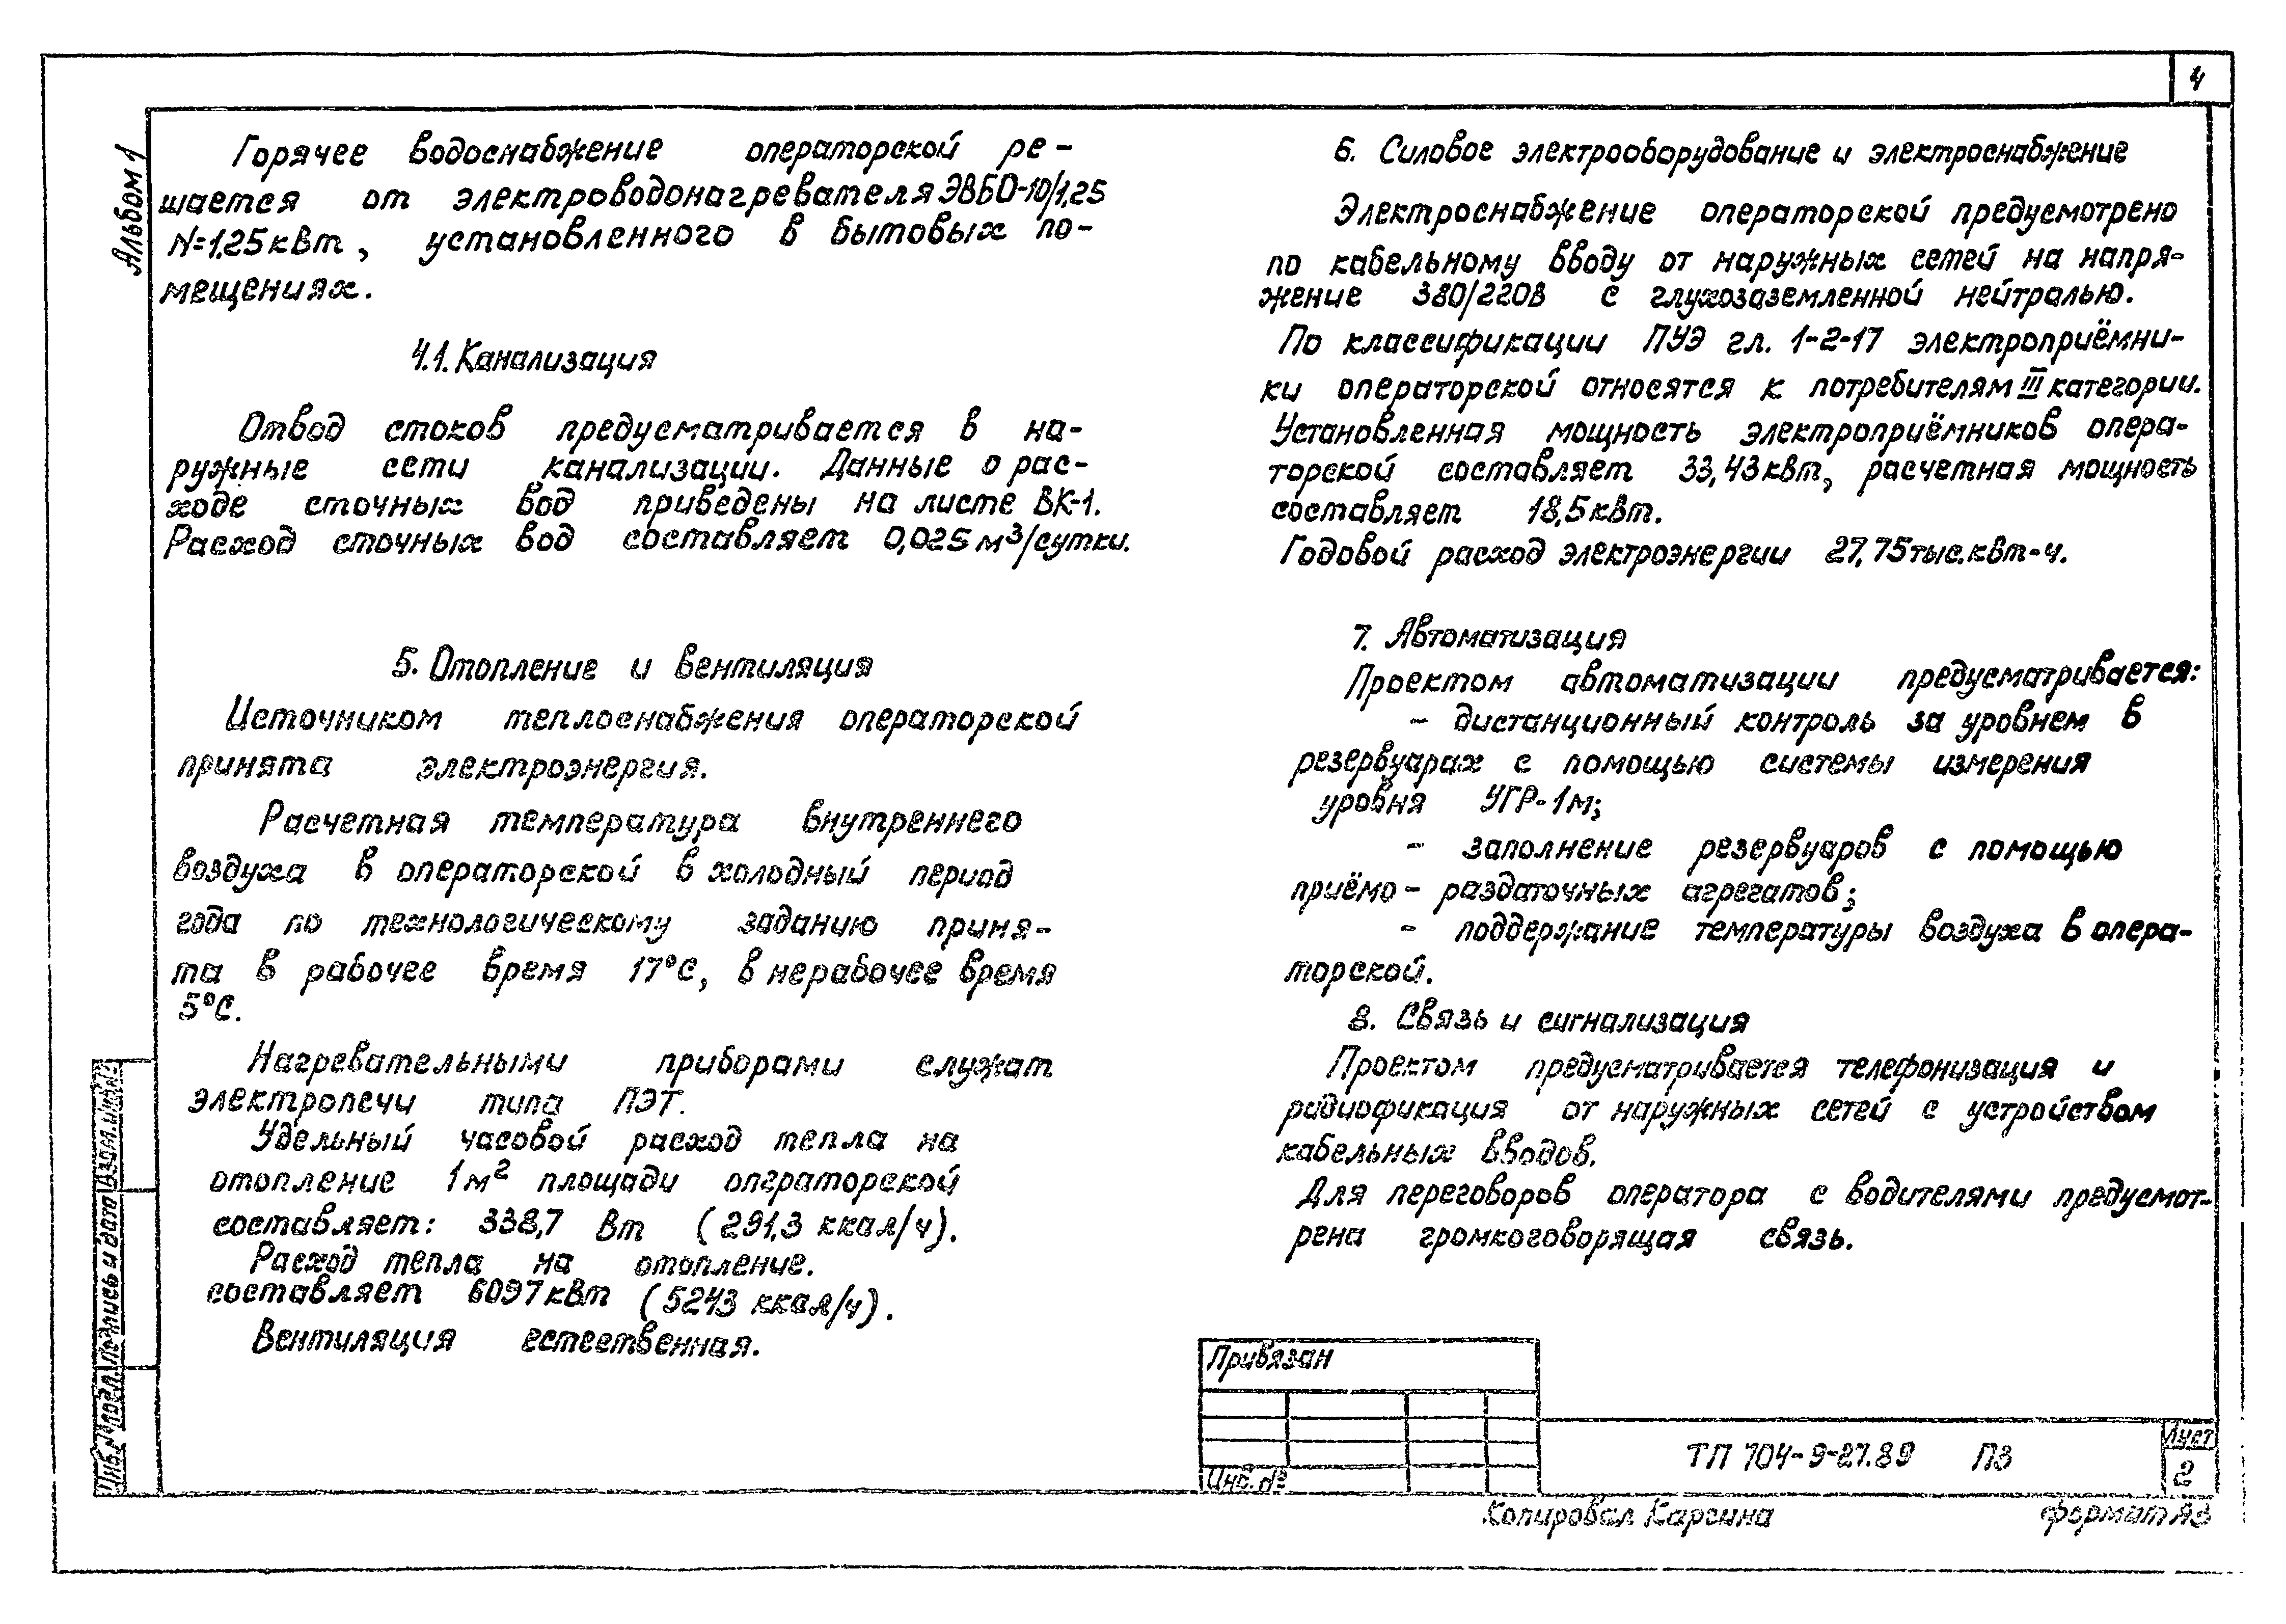 4
Альбом 1
Горячее водоснабжение операторской ре-
шается от электроводонагревателя ЭВБО-10/1,25
N=1,25 кВт, установленного в бытовых по-
мещениях.
4.1. Канализация
Отвод стоков предусматривается в на-
ружные сети канализации. Данные о рас-
ходе сточных вод приведены на листе ВК-1.
Расход сточных вод составляет 0,025 м³/сутки.
5. Отопление и вентиляция
Источником теплоснабжения операторской
принята электроэнергия.
Расчетная температура внутреннего
воздуха в операторской в холодный период
года по технологическому заданию приня-
та в рабочее время 17°С, в нерабочее время
5°С.
Нагревательными приборами служат
электропечи типа ПЭТ.
Удельный часовой расход тепла на
отопление 1м² площади операторской
составляет: 338,7 Вт (291,3 ккал/ч).
Расход тепла на отопление.
составляет 6097 кВт (5243 ккал/ч).
Вентиляция естественная.
6. Силовое электрооборудование и электроснабжение
Электроснабжение операторской предусмотрено
по кабельному вводу от наружных сетей на напря-
жение 380/220В с глухозаземленной нейтралью.
По классификации ПУЭ гл. 1-2-17 электроприёмни-
ки операторской относятся к потребителям III категории.
Установленная мощность электроприёмников опера-
торской составляет 33,43 кВт, расчетная мощность
составляет 18,5 кВт.
Годовой расход электроэнергии 27,75 тыс.кВт-ч.
7. Автоматизация
Проектом автоматизации предусматривается:
- дистанционный контроль за уровнем в
резервуарах с помощью системы измерения
уровня УГР-1м;
- заполнение резервуаров с помощью
приёмо-раздаточных агрегатов;
- поддержание температуры воздуха в опера-
торской.
8. Связь и сигнализация
Проектом предусматривается телефонизация и
радиофикация от наружных сетей с устройством
кабельных вводов.
Для переговоров оператора с водителями предусмот-
рена громкоговорящая связь.
Привязан
Инв. №
ТП 704-9-27.89 ПЗ
Лист
2
Копировал Каргина
формат А3
Инв.№ подл. Подпись и дата Взам.инв.№